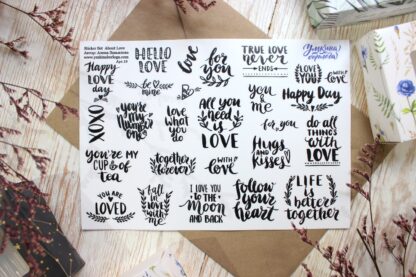 Sticker Set About Love
Happy
love
day
HELLO
LOVE
love
for
you
TRUE LOVE
never
ENDS
LOVE
YOU
with
love
be
mine
XOXO
you're
my
number
one
love
what
you
do
All you
need
is
LOVE
you
&
me
Happy Day
for you
do all
THINGS
with
LOVE
YOU'RE MY
CUP of
tea
together
forever
with
love
Hugs
and
kisses
YOU ARE
LOVED
fall
in
love
with
me
I LOVE YOU
to the
MOON
AND BACK
follow
your
heart
LIFE
is
better
together